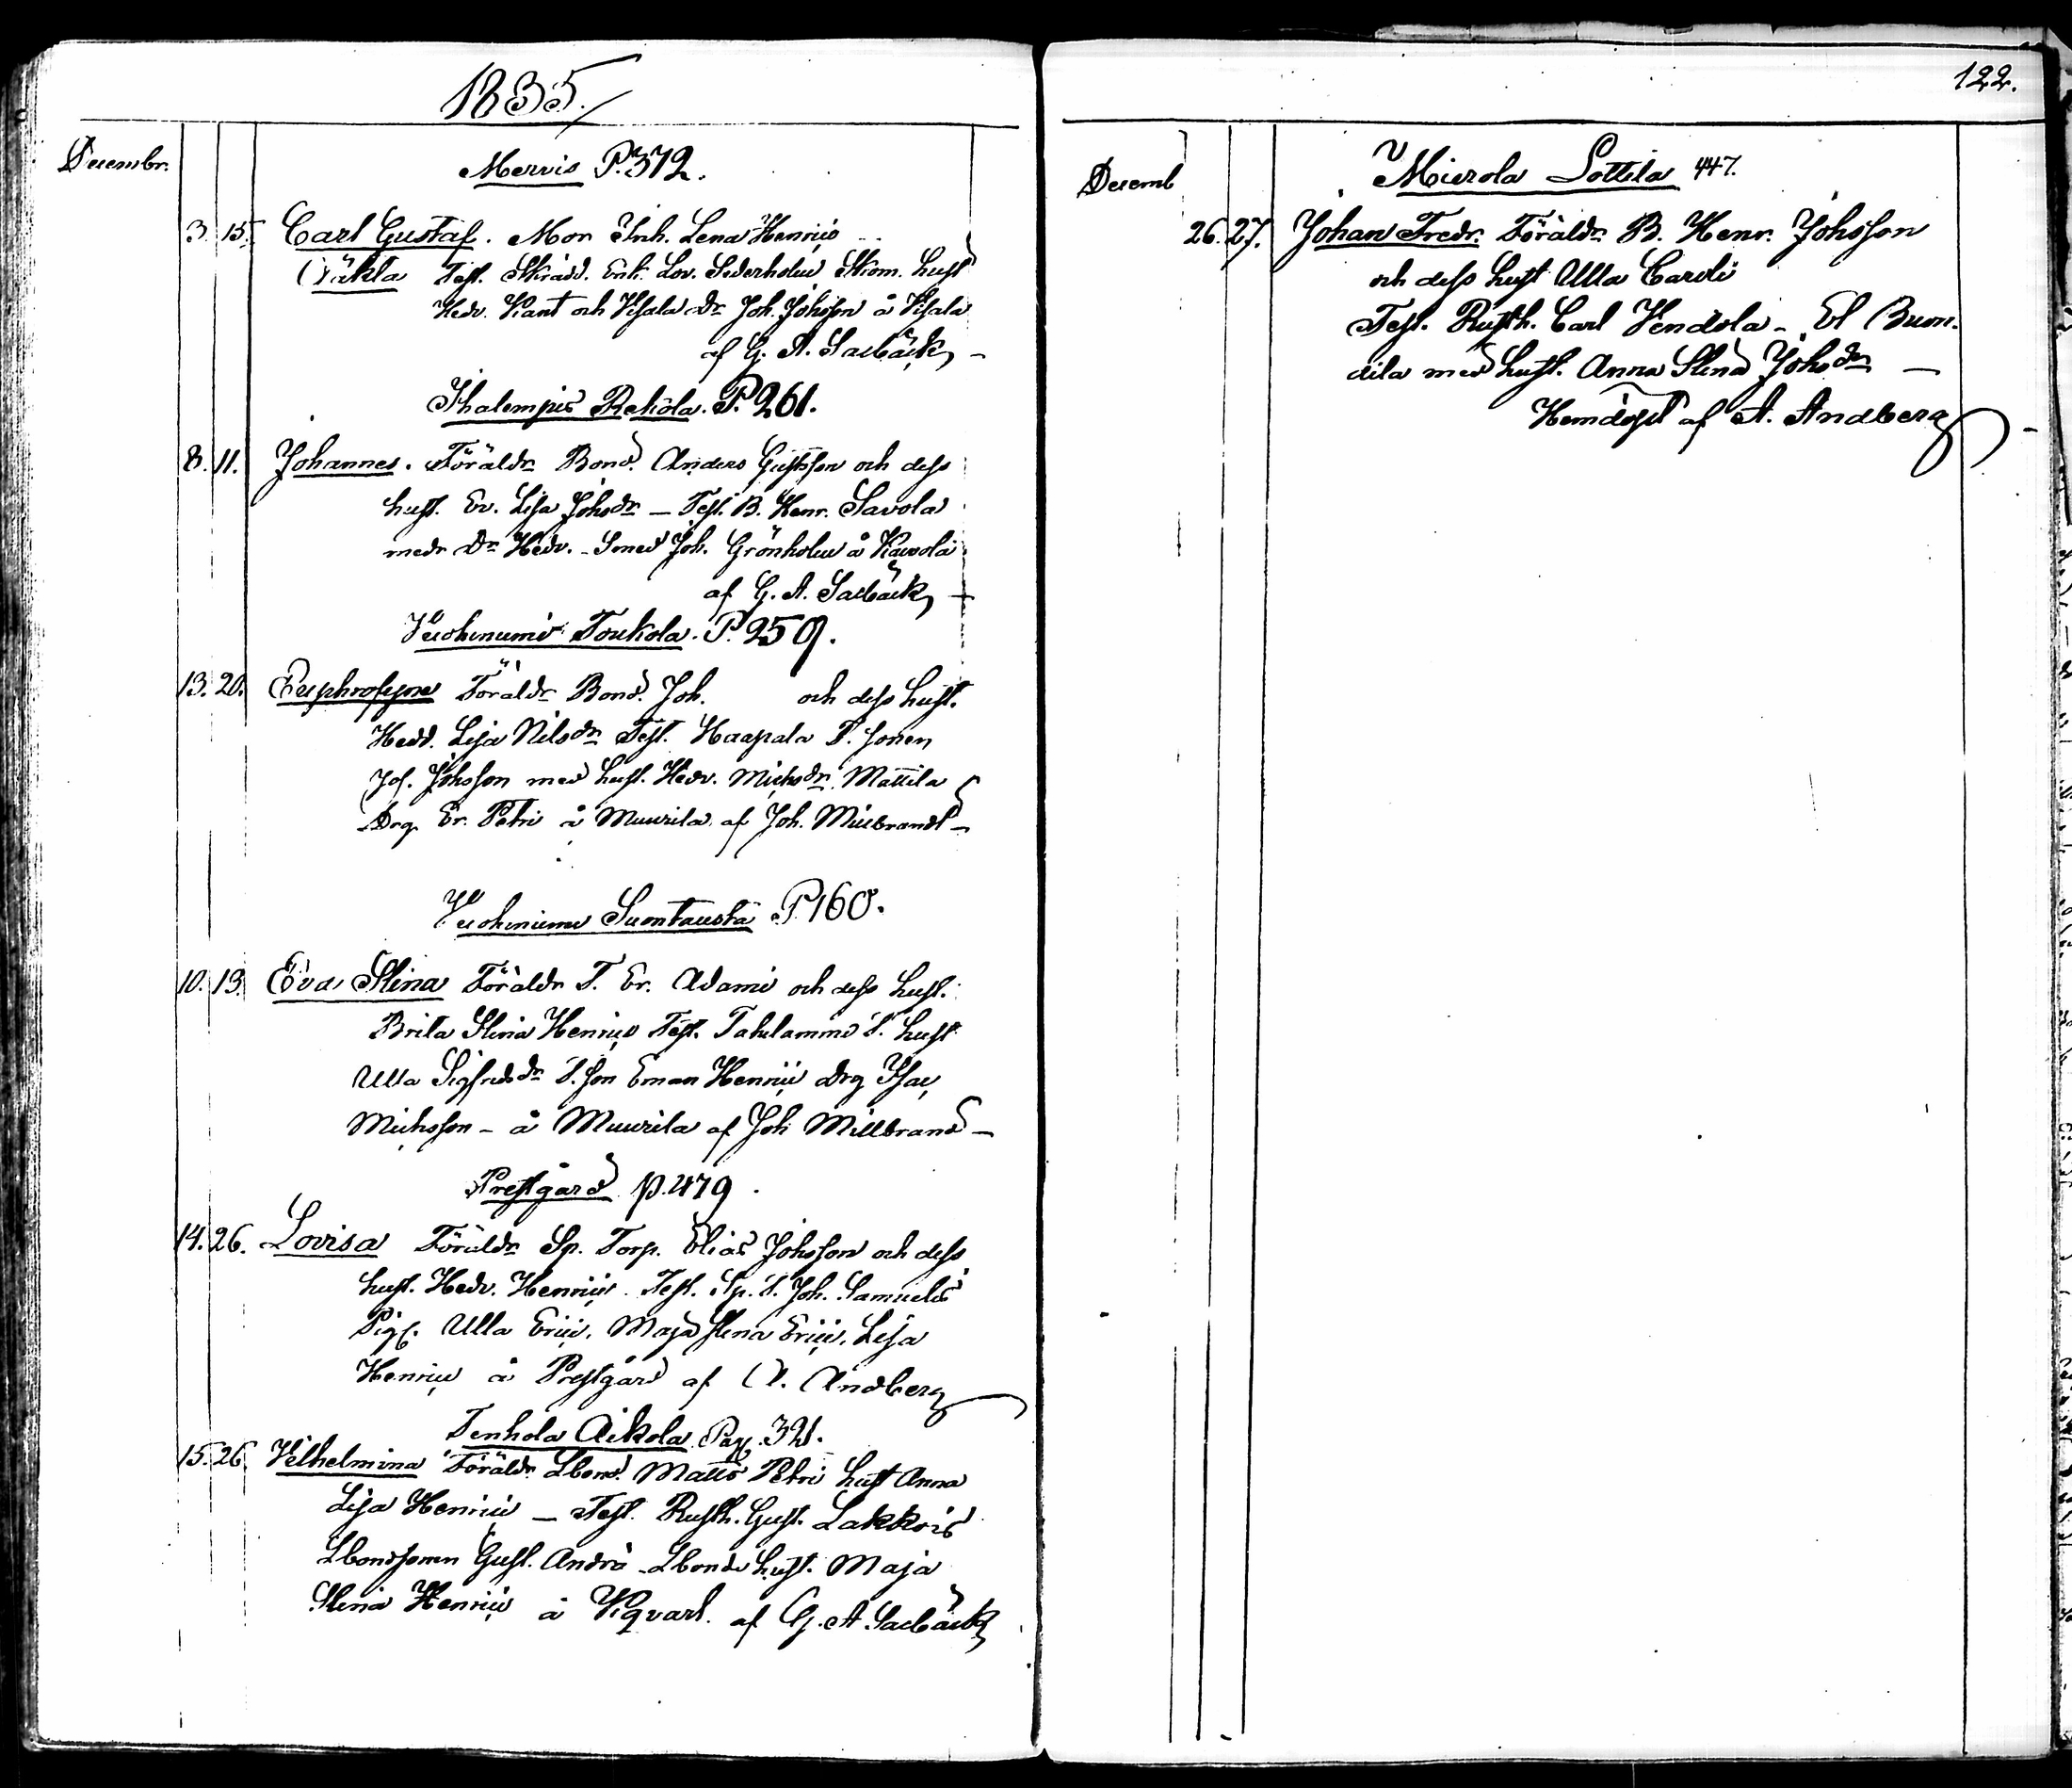 1835.
Decembr.
Mervis P. 372.
3. 15. Carl Gustaf. Mor Inh. Lena Henrici
Oäkta Test. Skrädd. Enk. Lov. Sederholm Skom. hust
Hedv. Kant och Visala Dr Joh. Johsson å Visala
af G. A. Sacbäck, -
Ihalempis Rekola. P. 261.
8. 11. Johannes. Föräldr Bond. Anders Gustsson och dess
hust. Ev. Lisa Johsdr - Test. B. Henr. Savola
medr Dr Hedv. - Smed Joh. Grönholm å
af G. A. Sacbäck, -
Vuohenumi Toukola. P. 259.
13. 20. Euphrosyne Föräldr Bond. Joh. och dess hust.
Hedd. Lisa Nilsdr Test. Haapala T. sonen
Jos. Johsson med hust. Hedv. Michsdr Mattila
Drg Er. Petri å Muurila af Joh. Millbrandt -
Vuohenumi Suontausta P. 160.
10. 13. Eva Stina Föräldr T. Er. Adami och dess hust.
Brita Stina Henrics Test. Takulammi T. hust
Ulla Sigfridsdr T. son Eman Henrici drg Isac
Michsson - å Muurila af Joh Millbrand -
Prestgård p. 479.
14. 26. Lovisa Föräldr Sp. Torp. Elias Johsson och dess
hust. Hedv. Henrici. Test. Sp. T. Joh. Samuels
Pig. Ulla Erici, Maja Stina Erici, Lisa
Henrici å Prestgård af A. Andberg
Tenhola Aikola Pag. 321.
15. 26. Vilhelmina Föräldr Lbond. Matts Petri hust Anna
Lisa Henrici - Test. Rusth. Gust. Lakkois
Lbondsonen Gust. Andrä Lbonde hust. Maja
Stina Henrici å Vigvarl. af G. A. Sacbäck
122.
Decemb
Mierola Lottila 447.
26. 27. Johan Fredr. Föräldr B. Henr. Johsson
och dess hust Ulla Caroli
Test. Rusth. Carl Vendola -
med hust. Anna Stina Johsdr -
Hemdöpt af A. Andberg -